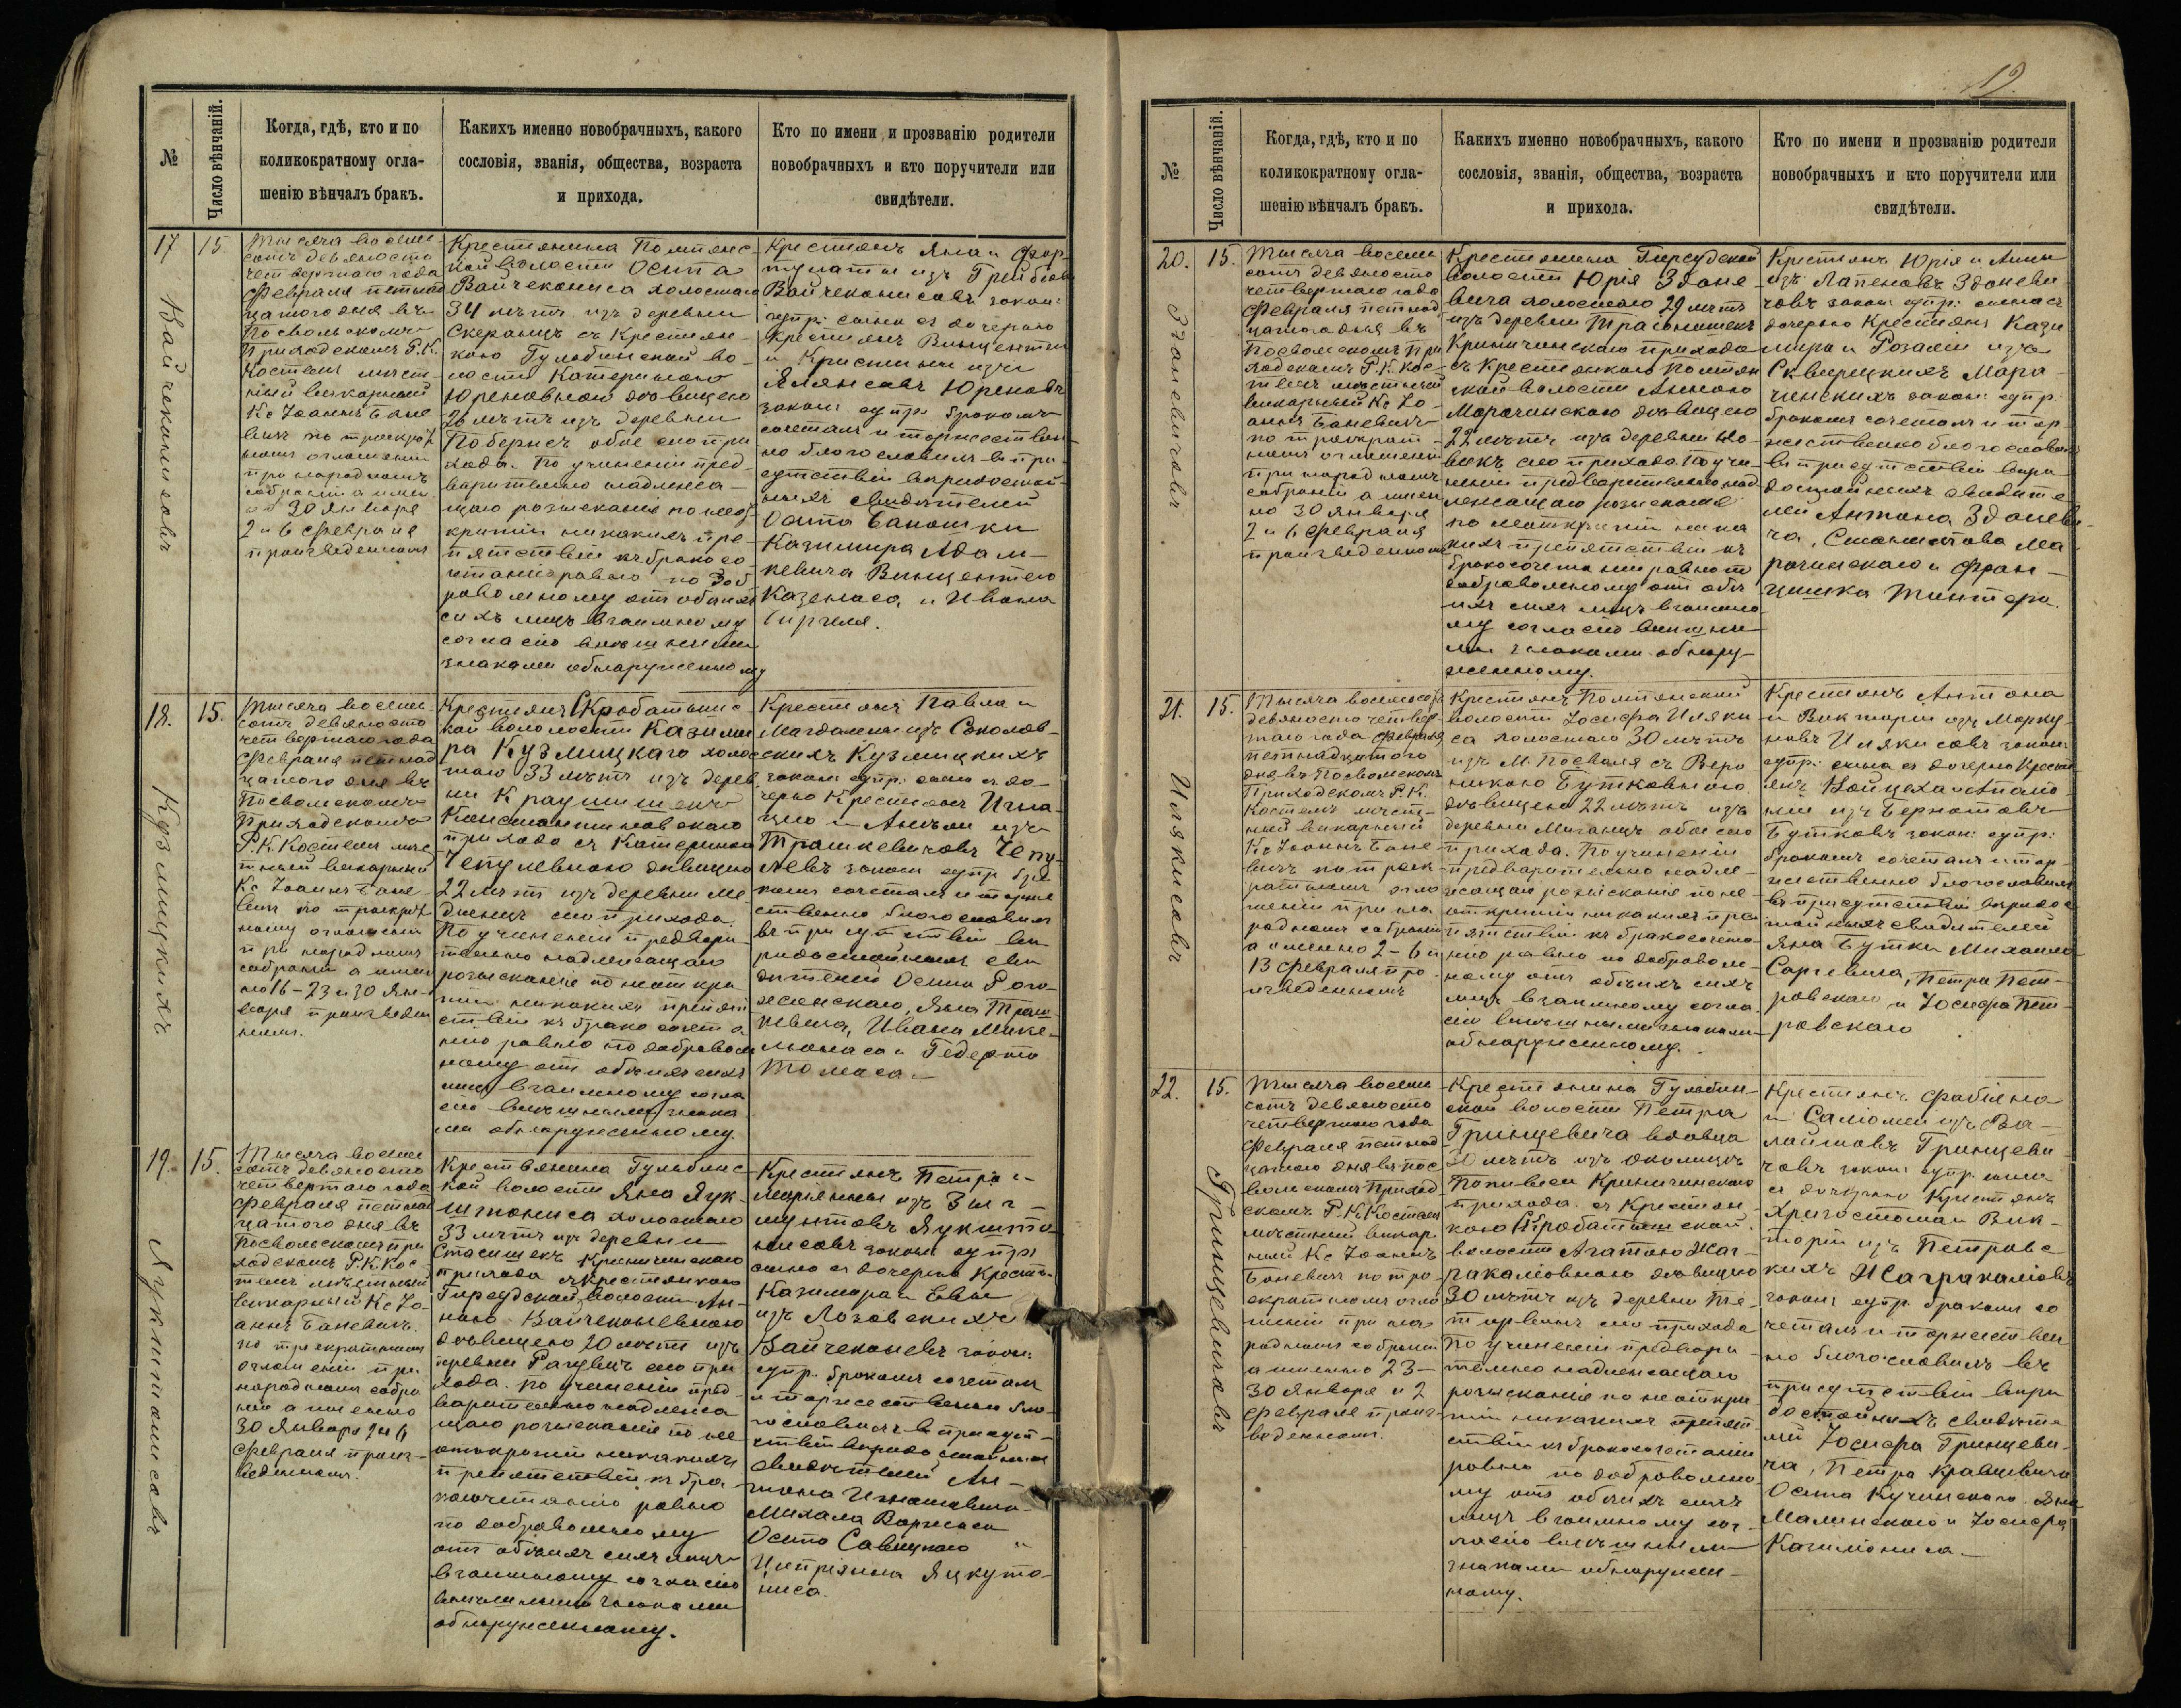 №
Число вѣнчаній.
Когда, гдѣ, кто и по
коликократному огла-
шенію вѣнчалъ бракъ.
Какихъ именно новобрачныхъ, какого
сословія, званія, общества, возраста
и прихода.
Кто по имени и прозванію родители
новобрачныхъ и кто поручители или
свидѣтели.
17
15
Тысяча восемь
сотъ девяносто
четвертаго года
Февраля пятнад
цатого дня въ
Посвольскомъ
Приходскомъ Р. К.
Костелѣ мѣст
ный викарный
Кс Іоаннъ Бане
вичъ по троекрат
номъ оглашеніи
при народномъ
собраніи а имен
но 30 Января
2 и 6 Февраля
произведенномъ
Крестьянина Помпянс
кой волости Осипа
Вайчекониса холостаго
34 лѣтъ изъ деревни
съ Крестьян
кою Гульбинской во
лости Катериною
Юреновною дѣвицею
26 лѣтъ изъ деревни
обое сего при
хода. По учиненіи пред
варительно надлежа-
щаго розысканія по неот
крытіи никакихъ пре-
пятствій къ брако со
четанію равно по доб
ровольному отъ обоихъ
сихъ лицъ взаимному
согласію внѣшними
знаками обнаруженному
Крестьянъ Яна и Фор
тунаты изъ
Вайчеконисовъ закон:
супр: сына съ дочерью
Крестьянъ Винцентія
и Кристины изъ
Юреновъ
закон: супр: бракомъ
сочеталъ и торжествен
но благословилъ въ при
сутствіи вѣродостой
ныхъ свидѣтелей
Осипа
Казимира Адам-
кевича Винцентего
и Ивана
Вайчеконисовъ
18.
15.
Тысяча восемь
сотъ девяносто
четвертаго года
Февраля пятнад
цатого дня въ
Посвольскомъ
Приходскомъ
Р. К. Костелѣ мѣс
тный викарный
Кс Іоаннъ Бане-
вичъ по троекрат
ному оглашеніи
при народномъ
собраніи а имен
но 16 - 23 и 30 Ян-
варя произведен
номъ.
Крестьянъ Кробатышс
кой волости Казими
ра Кузмицкаго холос
таго 33 лѣтъ изъ дерев
ни
Константиновскаго
прихода съ Катериною
Чепулевною дѣвицею
22 лѣтъ изъ деревни
сего прихода
По учиненіи предвари
тельно надлежащаго
розысканія по неоткры
тіи никакихъ препят
ствій къ брако сочета
нію равно по доброволь
ному отъ обоихъ сихъ
лицъ взаимному согла
сію внѣшными знака
ми обнаруженному.
Крестьянъ Павла и
Магдалены изъ Соколов-
скихъ Кузмицкихъ
закон: супр: сына съ до
черью Крестьянъ Игна
цего и Анели изъ
Трашкевичовъ Чепу
левъ закон: супр: бра
комъ сочеталъ и торже
ственно благословилъ
въ присутствіи вѣ
родостойныхъ сви
дѣтелей Осипа
Ивана
и
Томаса.
Кузмицкихъ
19.
15.
Тысяча восемь
сотъ девяносто
четвертаго года
Февраля пятнад
цатого дня въ
Посвольскомъ при
ходскомъ Р. К. Кос
телѣ мѣстный
викарный Кс Іо
аннъ Баневичъ.
по троекратномъ
оглашеніи при
народномъ собра
ніи а именно
30 Января 2 и 6
Февраля произ-
веденномъ.
Крестьянина Гульбинс
кой волости Яна Якук
штониса холостаго
33 лѣтъ изъ деревни
Криничинскаго
прихода съ крестьянкою
волости Ан-
ною Вайчеконевною
дѣвицею 20 лѣтъ изъ
деревни сего при
хода. По учиненіи пред-
варительно надлежа
щаго розысканія по не
открытіи никакихъ
препятствій къ бра-
косочетанію равно
по добровольному
отъ обоихъ сихъ лицъ
взаимному согласію
внѣшными знаками
обнаруженному.
Крестьянъ Петра и
Маріянны изъ Зыг-
мунтовъ
закон: супр:
сына съ дочерью Крестьянъ
Казимера и Евы
изъ
Вайчеконевъ закон:
супр. бракомъ сочеталъ
и торжественно бла-
гословилъ въ присут-
ствіи вѣродостойныхъ
свидѣтелей Ан-
тона
Михала
Осипа Савицкаго и
Ципріяна
Якуштонисовъ
19.
№
Число вѣнчаній.
Когда, гдѣ, кто и по
коликократному огла-
шенію вѣнчалъ бракъ.
Какихъ именно новобрачныхъ, какого
сословія, званія, общества, возраста
и прихода.
Кто по имени и прозванію родители
новобрачныхъ и кто поручители или
свидѣтели.
20.
15.
Тысяча восемь
сотъ девяносто
четвертаго года
Февраля пятнад
цатого дня въ
Посвольскомъ при
ходскомъ Р. К. Кос-
телѣ мѣстный
викарный Кс Іо-
аннъ Баневичъ
по троекрат-
номъ оглашеніи
при народномъ
собраніи а имен
но 30 Января
2 и 6 Февраля
произведенномъ
Крестьянина
волости Юрія Здане
вича холостаго 29 лѣтъ
изъ деревни
Криничинскаго прихода
съ Крестьянкою Помпян
ской волости Анною
Марачинскою дѣвицею
22 лѣтъ изъ деревни
сего прихода. По учи-
неніи предварительно над
лежащаго розысканія
по неоткрытіи ника
кихъ препятствій къ
бракосочетанію равно по
добровольному отъ обо
ихъ сихъ лицъ взаимно
му согласію внѣшны
ми знаками обнару-
женному.
Крестьянъ Юрія и Анны
изъ Лапеновъ Здоневи
човъ закон: супр: сына съ
дочерью Крестьянъ Кази
мира и Розаліи изъ
Сквирецкихъ Мара-
чинскихъ закон: супр:
бракомъ сочеталъ и тор
жественно благословилъ
въ присутствіи вѣро
достойныхъ свидѣте
лей Антона Здоневи
ча, Станислава Ма
рачинскаго и Фран-
цишка
Здоневичовъ
21.
15.
Тысяча восемьсотъ
девяносто четвер-
таго года Февраля
пятнадцатого
дня въ Посвольскомъ
Приходскомъ Р. К.
Костелѣ мѣст-
ный викарный
Кс Іоаннъ Бане-
вичъ по троек
ратномъ огла
шеніи при на
родномъ собраніи
а именно 2 - 6 и
13 Февраля про-
изведенномъ
Крестьянъ Помпянской
волости Іосифа Иляки
са холостаго 30 лѣтъ
изъ М. Посволя съ Веро
никою Бутковною
дѣвицею 22 лѣтъ изъ
деревни обое сего
прихода. По учиненіи
предварительно надле-
жащаго розысканія по не
открытіи никакихъ пре
пятствій къ бракосочета-
нію равно по доброволь-
ному отъ обоихъ сихъ
лицъ взаимному согла
сію внѣшными знаками
обнаруженному.
Крестьянъ Антона
и Викторіи изъ Марку
новъ Илякисовъ закон:
супр: сына съ дочерью Кресть
янъ Войцеха и Аполо-
ніи изъ Бернотовъ
Бутковъ закон: супр:
бракомъ сочеталъ и тор-
жественно благословилъ
въ присутствіи вѣродос
тойныхъ свидѣтелей
Яна Бутки Михаила
Петра Пет-
ровскаго и Іосифа Пет-
ровскаго
Илякисовъ
22.
15.
Тысяча восемь
сотъ девяносто
четвертаго года
Февраля пятнад
цатого дня въ Пос
вольскомъ Приход
скомъ Р. К. Костелѣ
мѣстный викар
ный Кс Іоаннъ
Баневичъ по тро
екратномъ огла
шеніи при на
родномъ собраніи
а именно 23 -
30 Января и 2
Февраля произ-
веденномъ.
Крестьянина Гульбин-
ской волости Петра
Гринцевича вдовца
50 лѣтъ изъ околицы
Криничинскаго
прихода съ Крестьян-
кою Кробатышской
волости Агатою
дѣвицею
30 лѣтъ изъ деревни
сего прихода
По учиненіи предвари-
тельно надлежащаго
розысканія по неоткры
тіи никакихъ препят
ствій къ бракосочетанію
равно по доброволно
му отъ обоихъ сихъ
лицъ взаимному сог-
ласію внѣшными
знаками обнаружен-
ному.
Крестьянъ Фабіяна
и Саломеи изъ
Гринцеви
човъ закон: супр: сына
съ дочерью Крестьянъ
и Вик-
торіи изъ Петровс
кихъ
закон: супр. бракомъ со
четалъ и торжествен
но благословилъ въ
присутствіи вѣро
достойныхъ свидѣте
лей Іосифа Гринцеви-
ча, Петра Кравцевича
Осипа Кучинскаго, Яна
Малинскаго и Іосифа
Гринцевичовъ